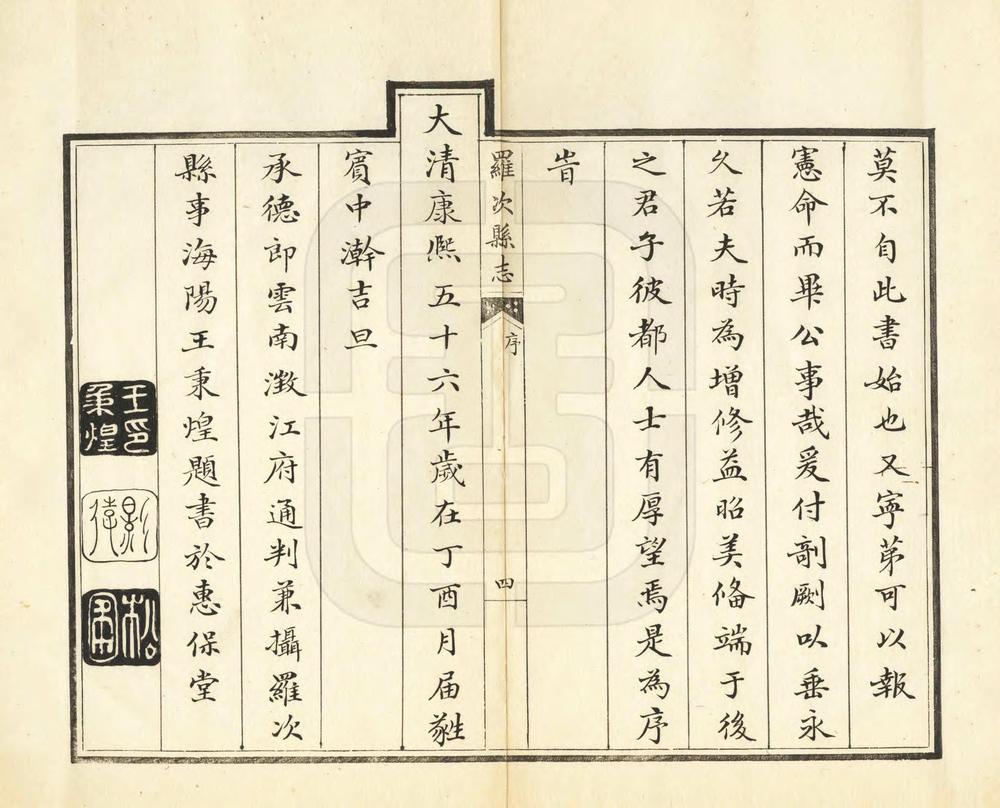 莫不自此書始也又寧苐可以報
憲命而畢公事哉爰付剞劂以垂永
久若夫時為增修益昭美俻端于後
之君子彼都人士有厚望焉是為序
旹
羅次縣志
序
四
大清康熙五十六年歲在丁酉月届蕤
賓中澣吉旦
承德郎雲南澂江府通判兼攝羅次
縣事海陽王秉煌題書於惠保堂
王印秉煌